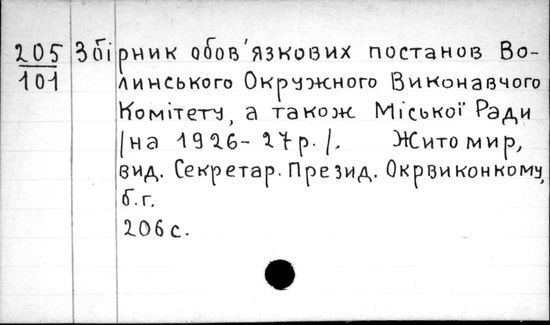 205 Збірник обов'язкових постанов Во-
101 линського Окружного Виконавчого
Комітету, а також Міської Ради
/на 1926-27р./. Житомир,
вид. Секретар. Презид. Окрвиконкому,
б.г.
206 с.